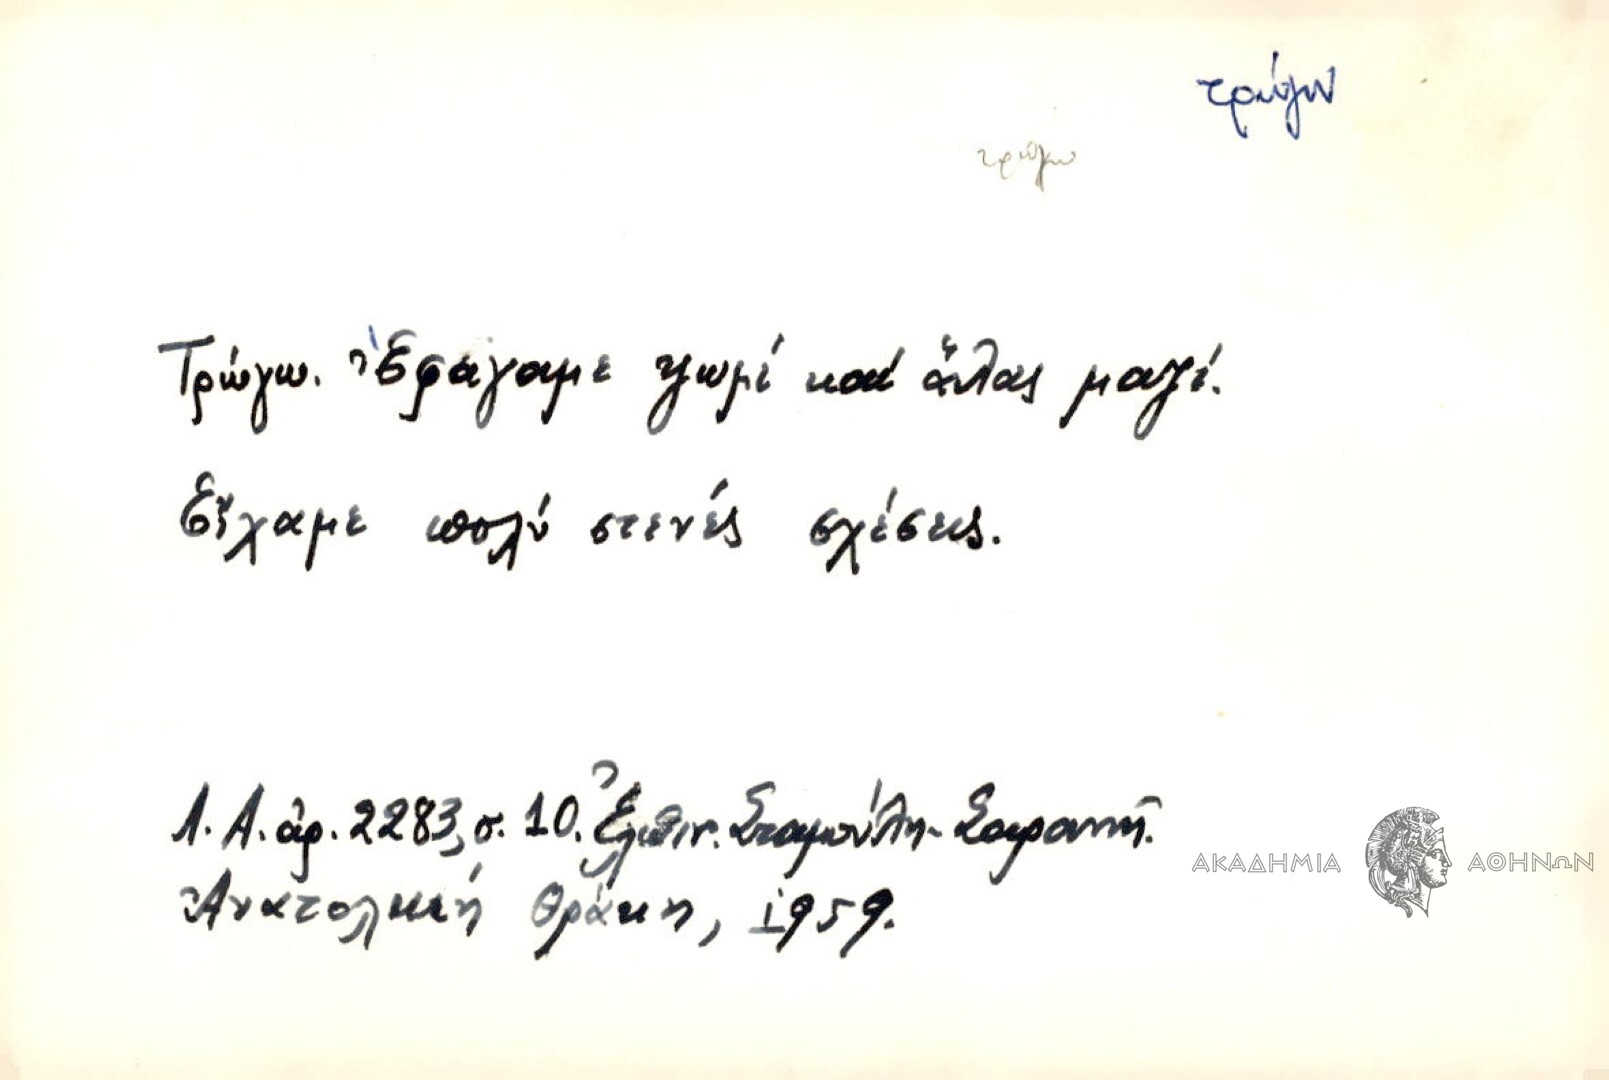 τρώγω
τρώγω
Τρώγω. Ἐφάγαμε ψωμί καί ἅλας μαζί.
Εἴχαμε πολύ στενές σχέσεις.
Λ. Α. ἀρ. 2283, σ. 10. Ἐλπιν. Σταμούλη-Σαραντῆ.
Ἀνατολική Θράκη, 1959.
ΑΚΑΔΗΜΙΑ ΑΘΗΝΩΝ